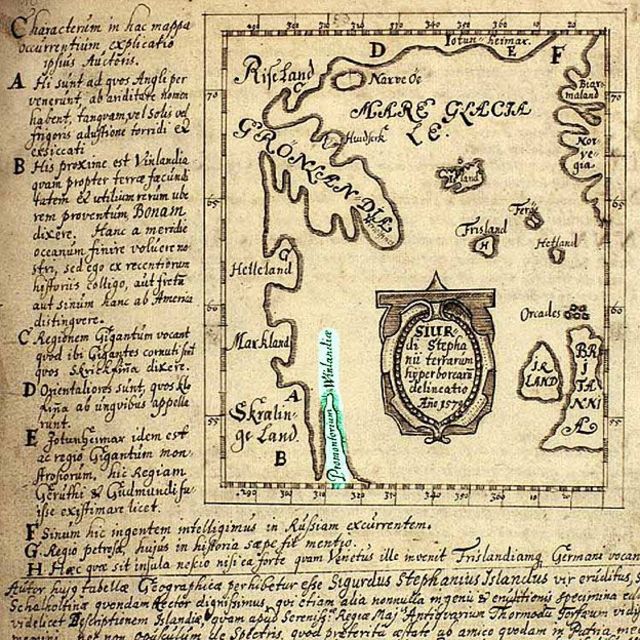 Characterum in hac mappa
occurrentium explicatio
ipsius Auctoris.
A Hi sunt ad quos Angli per
venerunt, ab ariditate nomen
habent, tanquam vel Solis vel
frigoris adustione torridi et
exsiccati
B His proxime est Vinlandia
quam propter terræ fæcundi
tatem et utilium rerum ube
rem proventum Bonam
dixere. Hanc a meridie
oceanum finire voluere no
stri, sed ego ex recentiorum
historiis colligo, aut fretum
aut sinum hanc ab America
distinguere.
C Regionem Gigantum vocant
quod ibi Gigantes cornuti sint
quos Skrickfina dixere.
D Orientaliores sunt, quos Klo
fina ab unguibus appella
runt.
E Jotunheimar idem est
ac regio Gigantum mon
strosorum. hic Regiam
Geruthi et Gudmundi fu
isse existimare licet.
F Sinum hic ingentem intelligimus in Russiam excurrentem.
G Regio petrosa, hujus in historia sæpe fit mentio.
H Hæc quæ sit insula nescio nisi ea forte quam Venetus ille invenit Frislandiamq Germani vocan
Autor hujus tabellæ Geographicæ perhibetur esse Sigurdus Stephanius Islandus vir eruditus,
Schalholtinæ quondam Rector dignissimus, qui etiam alia nonnulla ingenii et eruditionis specimina
videlicet Descriptionem Islandiæ quam apud Sereniss: Regiæ Maj: Antiqvarium Thormodu Torfæum vidi
non opusculum de Spectris, quod præterita æstate ab amico quodam in Patria
D
Iotun-heimar.
E
F
Riseland
C
Narve Oe
Biar
maland
70
70
MARE GLACIA
LE.
GRÖNLANDIA
Huidserk
Nor
ve
gia
Island
65
65
Ferö
Frisland
H
Hetland
G
Helleland
60
60
Orcades
SIUR
di Stepha
nii terrarum
hyperborearu
delineatio
Año 1570
Markland
IR
LAND
BRI
TAN
NI
A
A
Promontorium Winlandiæ
Skralin
ge Land
55
55
B